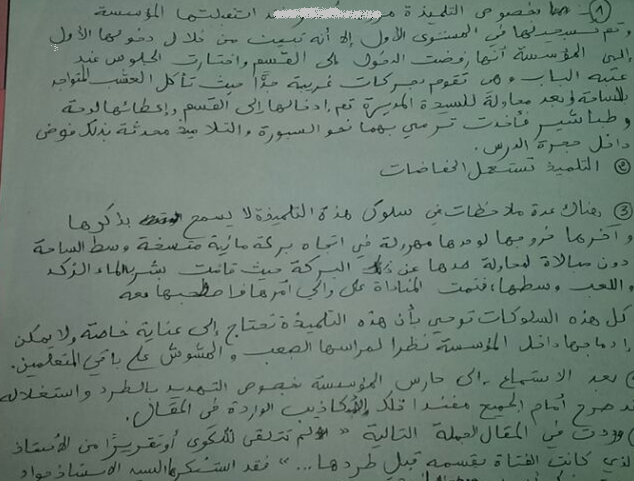 ① بخصوص التلميذة استقبلتها المؤسسة
وتم تسجيلها في المستوى الأول إلا أنه تبين من خلال دخولها الأول
إلى المؤسسة أنها رفضت الدخول إلى القسم واختارت الجلوس عند
عتبة الباب وهي تقوم بحركات غريبة جدًّا حيث تأكل العشب المتواجد
بالساحة وبعد محاولة للسيدة المديرة تم إدخالها إلى القسم وإعطائها لوحة
وطباشير فأخدت ترمي بهما نحو السبورة والتلاميذ محدثة بذلك فوضى
داخل حجرة الدرس.
② التلميذ تستعمل الحفاضات
③ هناك عدة ملاحظات في سلوك هذه التلميذة لا يسمح بذكرها
وآخرها خروجها لوحدها مهرولة في اتجاه بركة مائية متسخة وسط الساحة
دون مبالاة لمحاولة صدها عن البركة حيث قامت بشرب الماء الراكد
واللعب وسطها، فتمت المناداة على ولي أمرها فاصطحبها معه
كل هذه السلوكات توحي بأن هذه التلميذة تحتاج إلى عناية خاصة ولا يمكن
إدماجها داخل المؤسسة نظرا لمراسها الصعب والمشوش على باقي المتعلمين.
بعد الاستماع إلى حارس المؤسسة بخصوص التهديد بالطرد واستغلاله
صرح أمام الجميع مفندا تلك الأكاذيب الواردة في المقال.
وردت في المقال الجملة التالية « لم تتلقى شكوى أو تقريرًا من الأستاذ
الذي كانت الفتاة بقسمه قبل طردها ... » فقد استنكر السيد الاستاذ